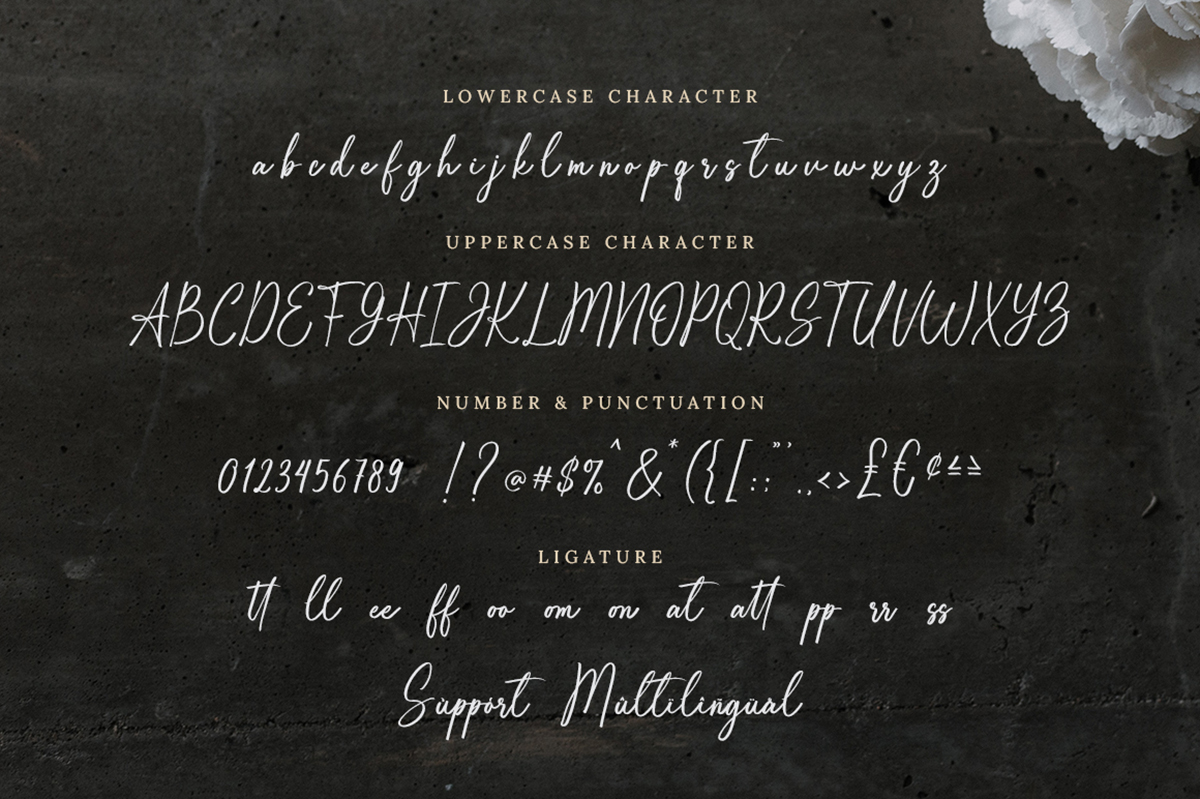 LOWERCASE CHARACTER
a b c d e f g h i j k l m n o p q r s t u v w x y z
UPPERCASE CHARACTER
A B C D E F G H I J K L M N O P Q R S T U V W X Y Z
NUMBER & PUNCTUATION
0123456789 !?@#$%^&*({[:;"',.,<>£€¢≤≥
LIGATURE
tt ll ee ff oo om on at att pp rr ss
Sùppört Mùltilïñgüàl